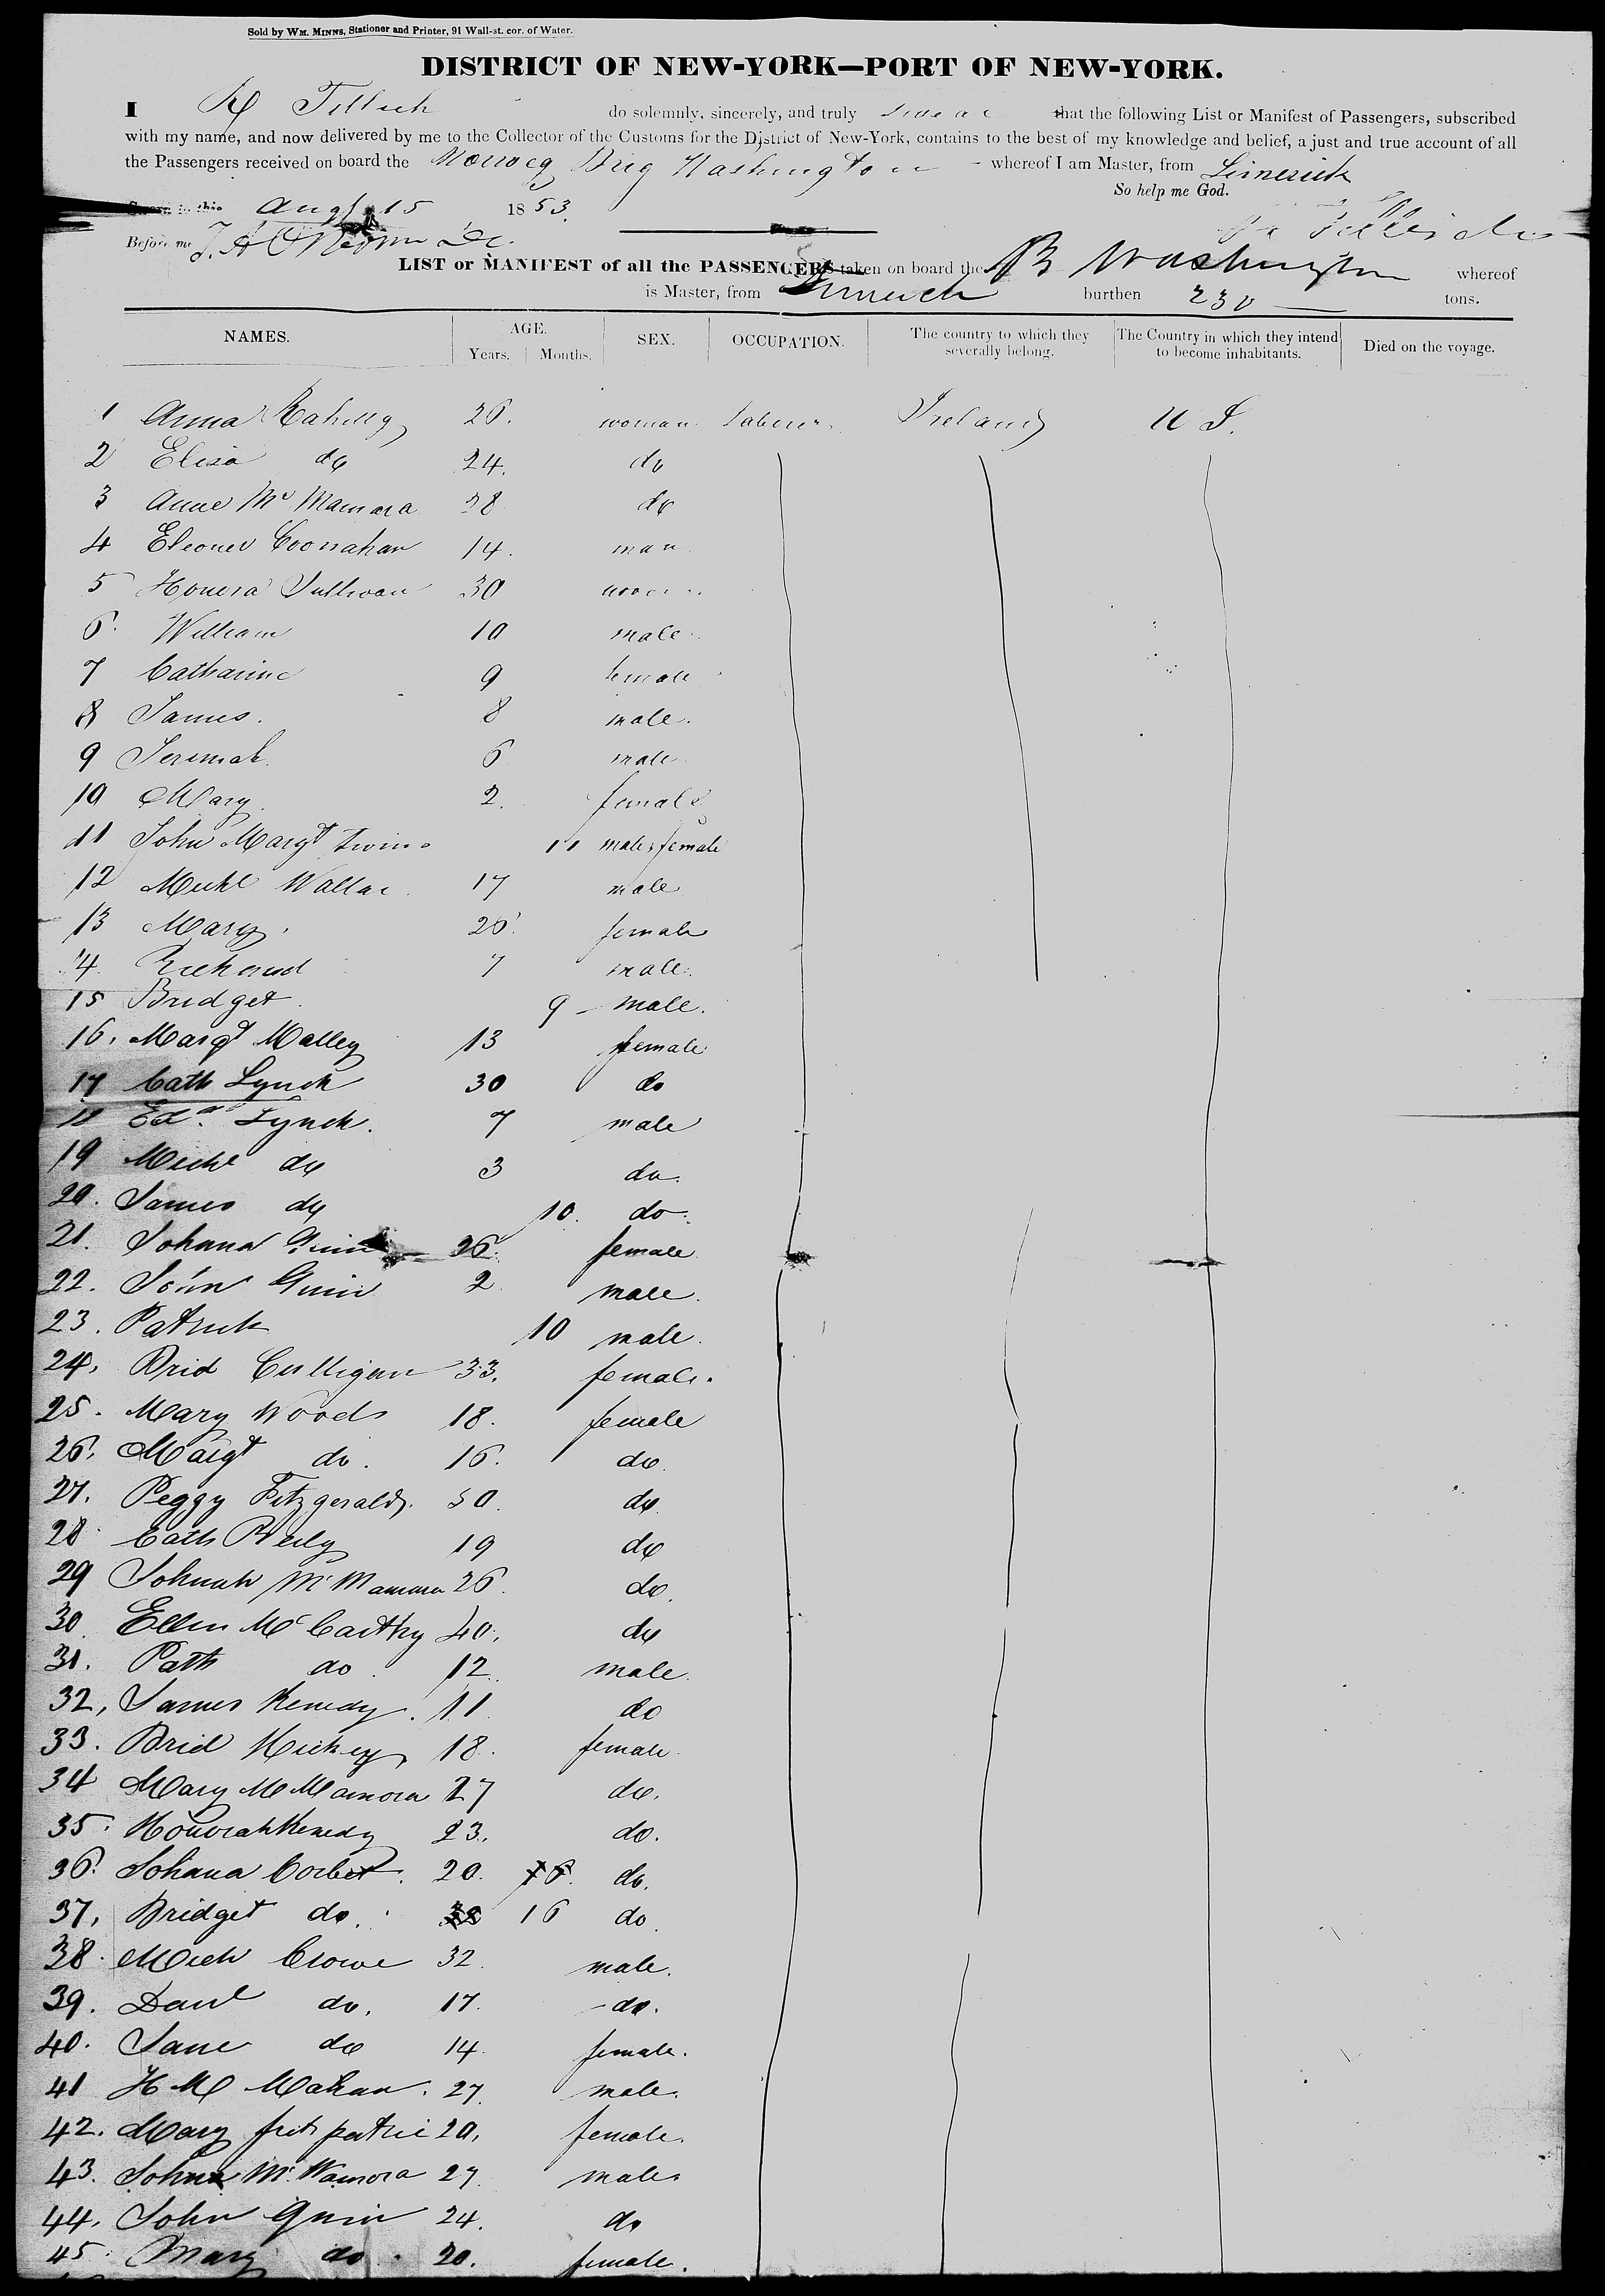 Sold by WM. MINNS, Stationer and Printer, 91 Wall-st. cor. of Water.
DISTRICT OF NEW-YORK—PORT OF NEW-YORK.
I do solemnly, sincerely, and truly that the following List or Manifest of Passengers, subscribed
with my name, and now delivered by me to the Collector of the Customs for the District of New-York, contains to the best of my knowledge and belief, a just and true account of all
the Passengers received on board the Brig Washington whereof I am Master, from Limerick
So help me God.
Sworn to this Augt 15 1853.
Before me
LIST or MANIFEST of all the PASSENGERS taken on board the B Washington whereof
is Master, from Limerick burthen 230 tons.
NAMES. AGE. SEX. OCCUPATION. The country to which they severally belong. The Country in which they intend to become inhabitants. Died on the voyage.
Years. Months.
1 Anna 26. woman Laborer Ireland U S.
2 Elisa do 24. do
3 Anne Mc Mamara 28 do
4 Eleoner Coonahan 14. man
5 Honera Sullivan 30
6. William 10 male
7 Catharine 9 female
8 James. 8 male.
9 Jeremiah. 6 male
10 Mary. 2. female
11 John Margt twins 11 male & female
12 Michl Wallac 17 male
13 Mary. 26. female
14. Richard 7 male.
15 Bridget. 9 - male.
16. Margt Malley 13 female
17 Cath Lynch 30 do
18 Edmd. Lynch. 7 male
19 Michl do 3 do.
20. James do 10. do.
21. Johana Quin 26. female
22. John Quin 2 male.
23. Patrick 10 male.
24. Brid Culligan 33. female.
25. Mary Woods 18. female
26. Margt do. 16. do.
27. Peggy Fitzgerald. 50. do
28 Cath Reily 19 do
29 Johnah Mc Mamara 26. do.
30. Ellen Mc Carthy 40. do
31. Path do. 12. male.
32, James Kenedy. 11 do
33. Brid Hickey 18. female
34 Mary Mc Mamora 27 do.
35. Honorah Kenedy 23. do.
36. Johana Corbet. 20. do.
37, Bridget do. 16 do.
38. Mich Crowe 32. male.
39. Danl do. 17. do.
40. Jane do 14. female.
41 H Mc Mahan. 27. male.
42. Mary fitz patric 20, female.
43. John Mc Namora 27 male
44, John Quin 24. do
45. Mary do. 20. female.